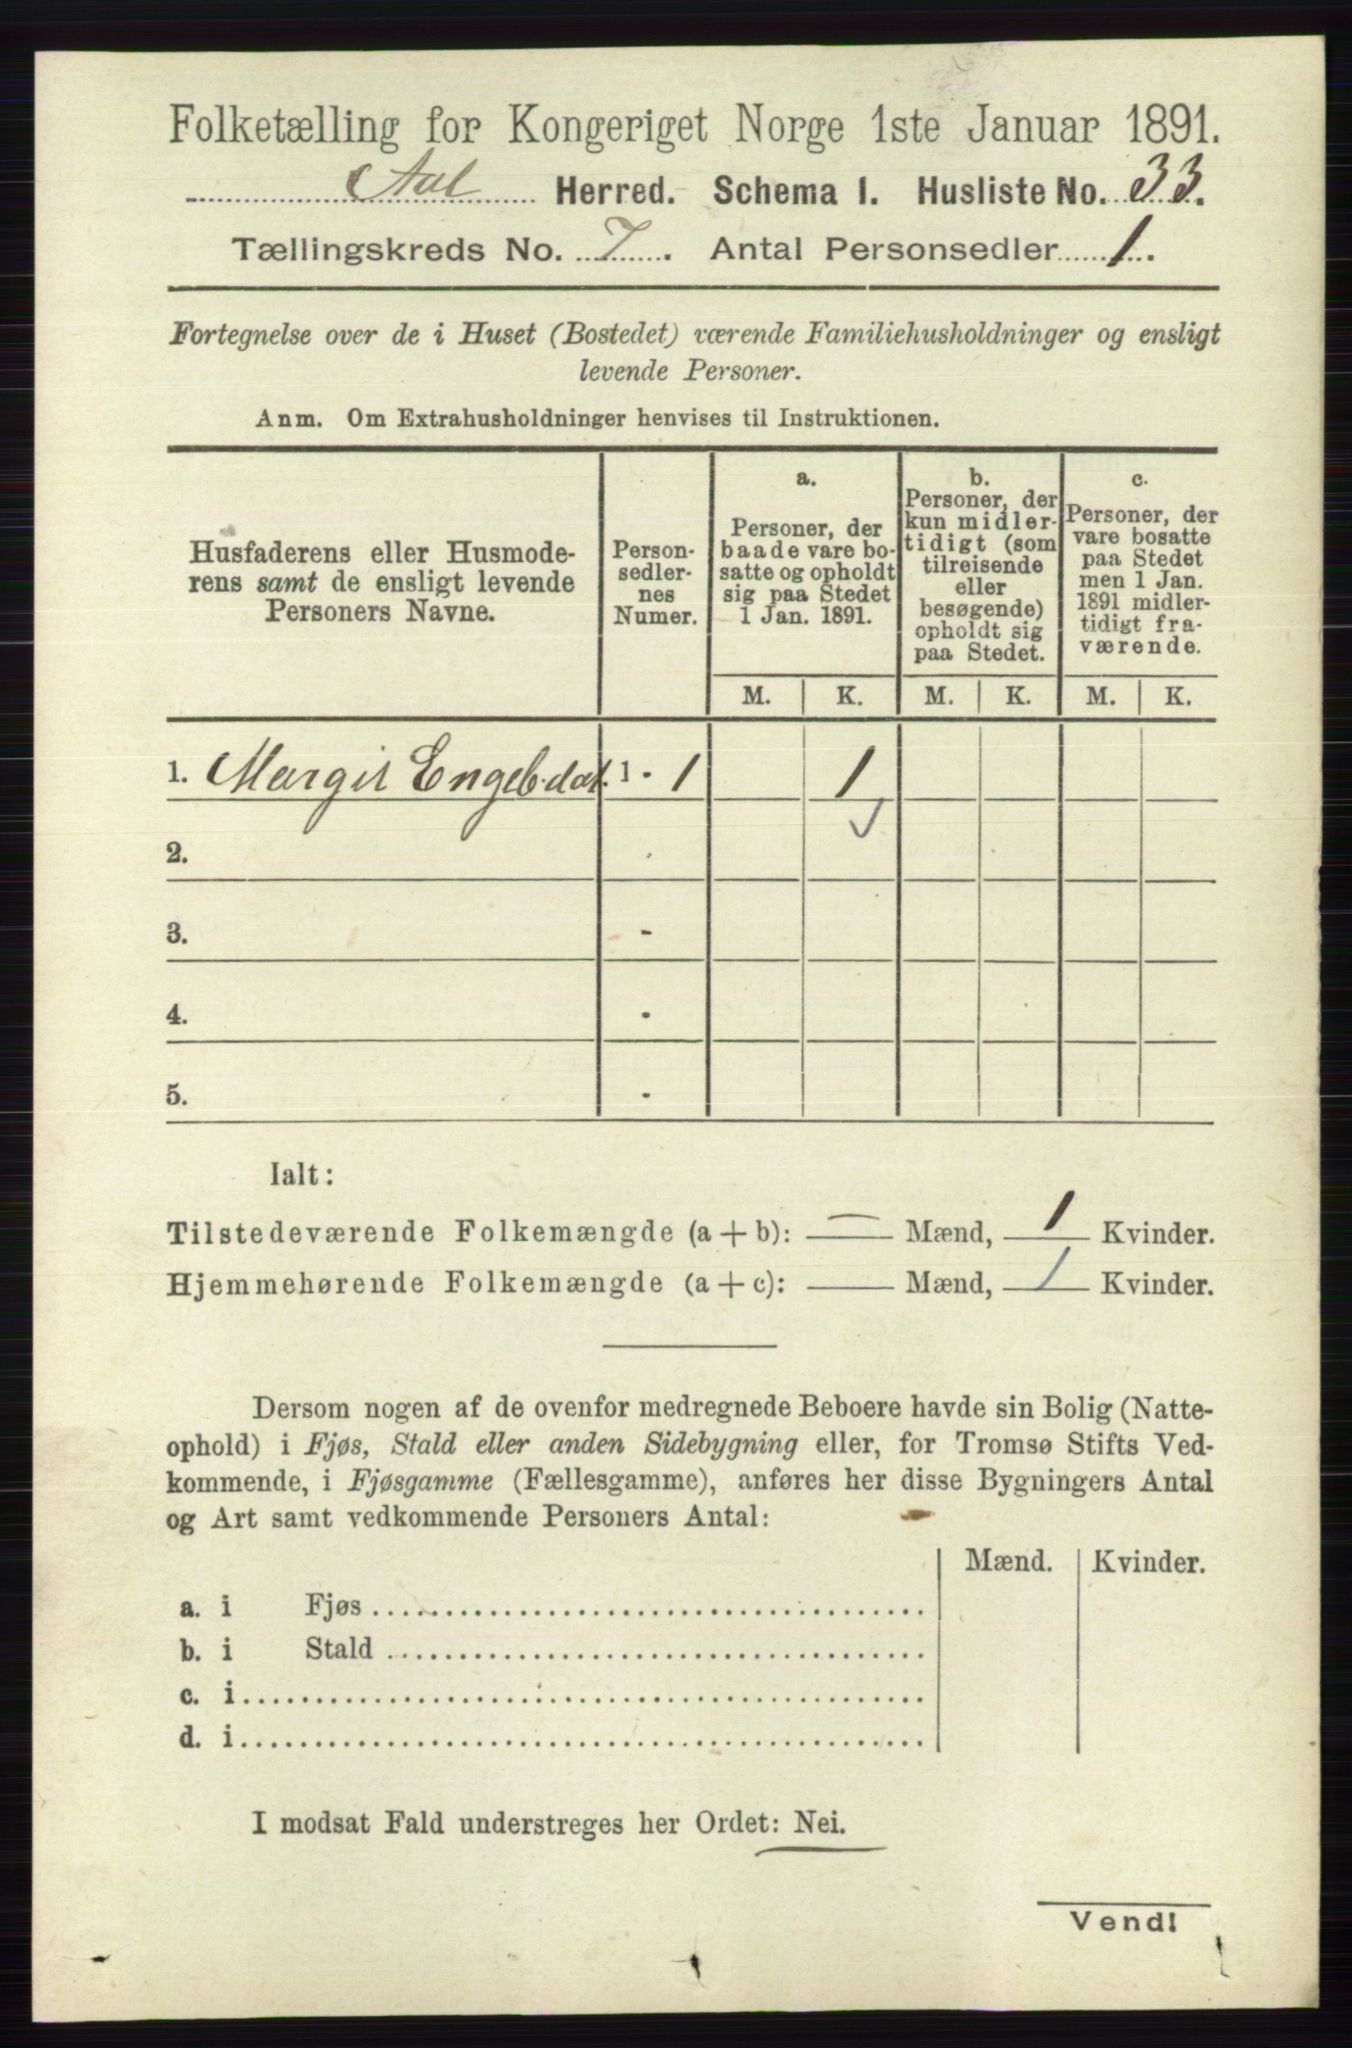 Folketælling for Kongeriget Norge 1ste Januar 1891.
Aal Herred. Schema 1. Husliste No. 33.
Tællingskreds No. 7. Antal Personsedler 1.
Fortegnelse over de i Huset (Bostedet) værende Familiehusholdninger og ensligt
levende Personer.
Anm. Om Extrahusholdninger henvises til Instruktionen.
Husfaderens eller Husmode-
rens samt de ensligt levende
Personers Navne.
Person-
sedler-
nes
Numer.
a.
Personer, der
baade vare bo-
satte og opholdt
sig paa Stedet
1 Jan. 1891.
b.
Personer, der
kun midler-
tidigt (som
tilreisende
eller
besøgende)
opholdt sig
paa Stedet.
c.
Personer, der
vare bosatte
paa Stedet
men 1 Jan.
1891 midler-
tidigt fra-
værende.
M. K. M. K. M. K.
1. Margit Engeb.dat. 1 - 1 1
2.
3. -
4. -
5. -
Ialt:
Tilstedeværende Folkemængde (a + b): — Mænd, 1 Kvinder.
Hjemmehørende Folkemængde (a + c): Mænd, 1 Kvinder.
Dersom nogen af de ovenfor medregnede Beboere havde sin Bolig (Natte-
ophold) i Fjøs, Stald eller anden Sidebygning eller, for Tromsø Stifts Ved-
kommende, i Fjøsgamme (Fællesgamme), anføres her disse Bygningers Antal
og Art samt vedkommende Personers Antal:
Mænd. Kvinder.
a. i Fjøs
b. i Stald
c. i
d. i
I modsat Fald understreges her Ordet: Nei.
Vend!